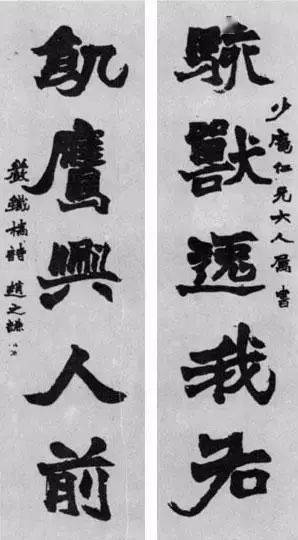 少鷹仁兄大人属書
駭獸逸我右
飢鷹興人前
嚴鐵橋詩 趙之謙